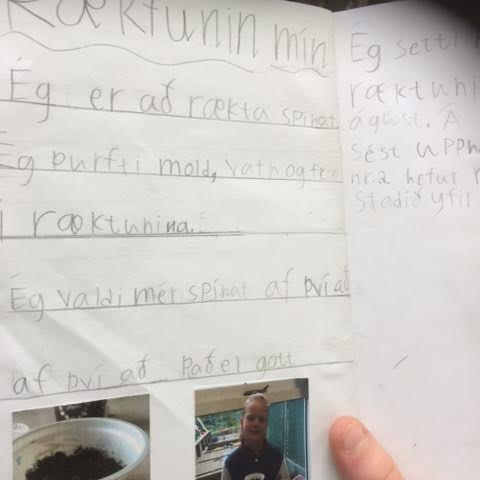 Ræktunin mín
Ég er að rækta spínat
Ég þurfti mold, vatn og fræ
í ræktunina.
Ég valdi mér spínat af því að
af því að það el gott
Ég setti
ræktuni
ágúst. Á
sést upp
nr.2 hefur
staðið yfir